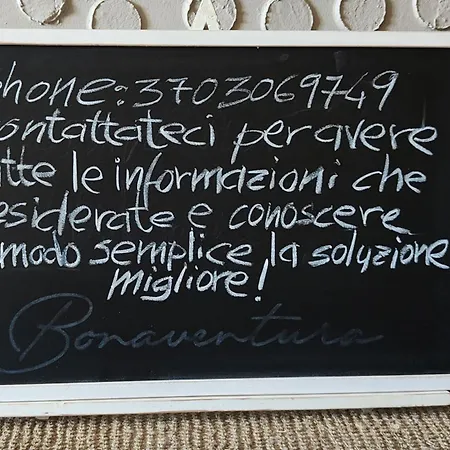 phone: 3703069749
contattateci per avere
tutte le informazioni che
desiderate e conoscere
modo semplice la soluzione
migliore!
Bonaventura